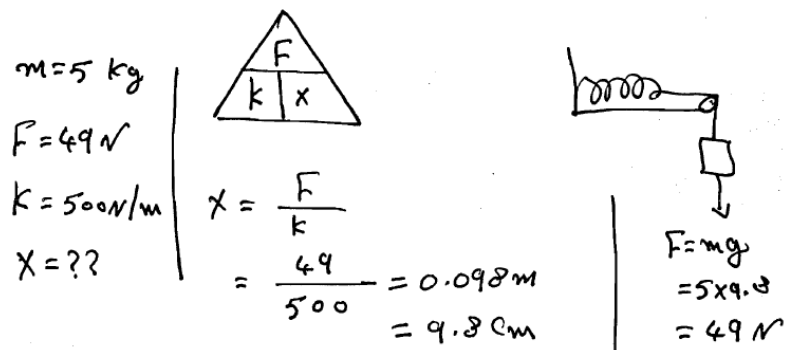 m=5 kg
F=49N
K=500N/m
X=??
F
k x
X = F/k
= 49/500 = 0.098m
= 9.8 Cm
F=mg
=5x9.8
=49 N